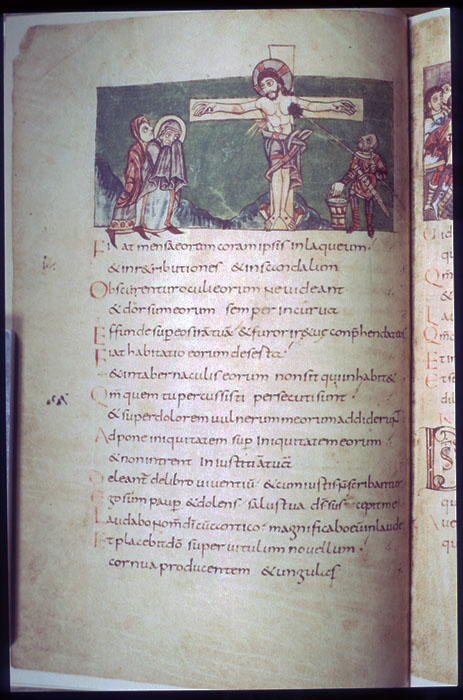 Fiat mensa eorum coram ipsis in laqueum
& in r&ributiones & in scandalum
Obscurentur oculi eorum ne uideant
& dorsum eorum semper incurua
Effunde sup eos irā tuā & furor irę tuę conp̄hendat eos
Fiat habitatio eorum deserta
& in tabernaculis eorum non sit qui inhabit&
Qm̄ quem tu percussisti persecuti sunt
& super dolorem uulnerum meorum addiderunt
Adpone iniquitatem sup iniquitatem eorum
& non intrent in iustitiā tuā
Deleant de libro uiuentiū & cum iustis scribantur
Ego sum paup & dolens salus tua ds̄ suscepit me
Laudabo nom̄ dī cū cantico magnificabo eū in laude
Et placebit dō super uitulum nouellum
cornua producentem & ungulas